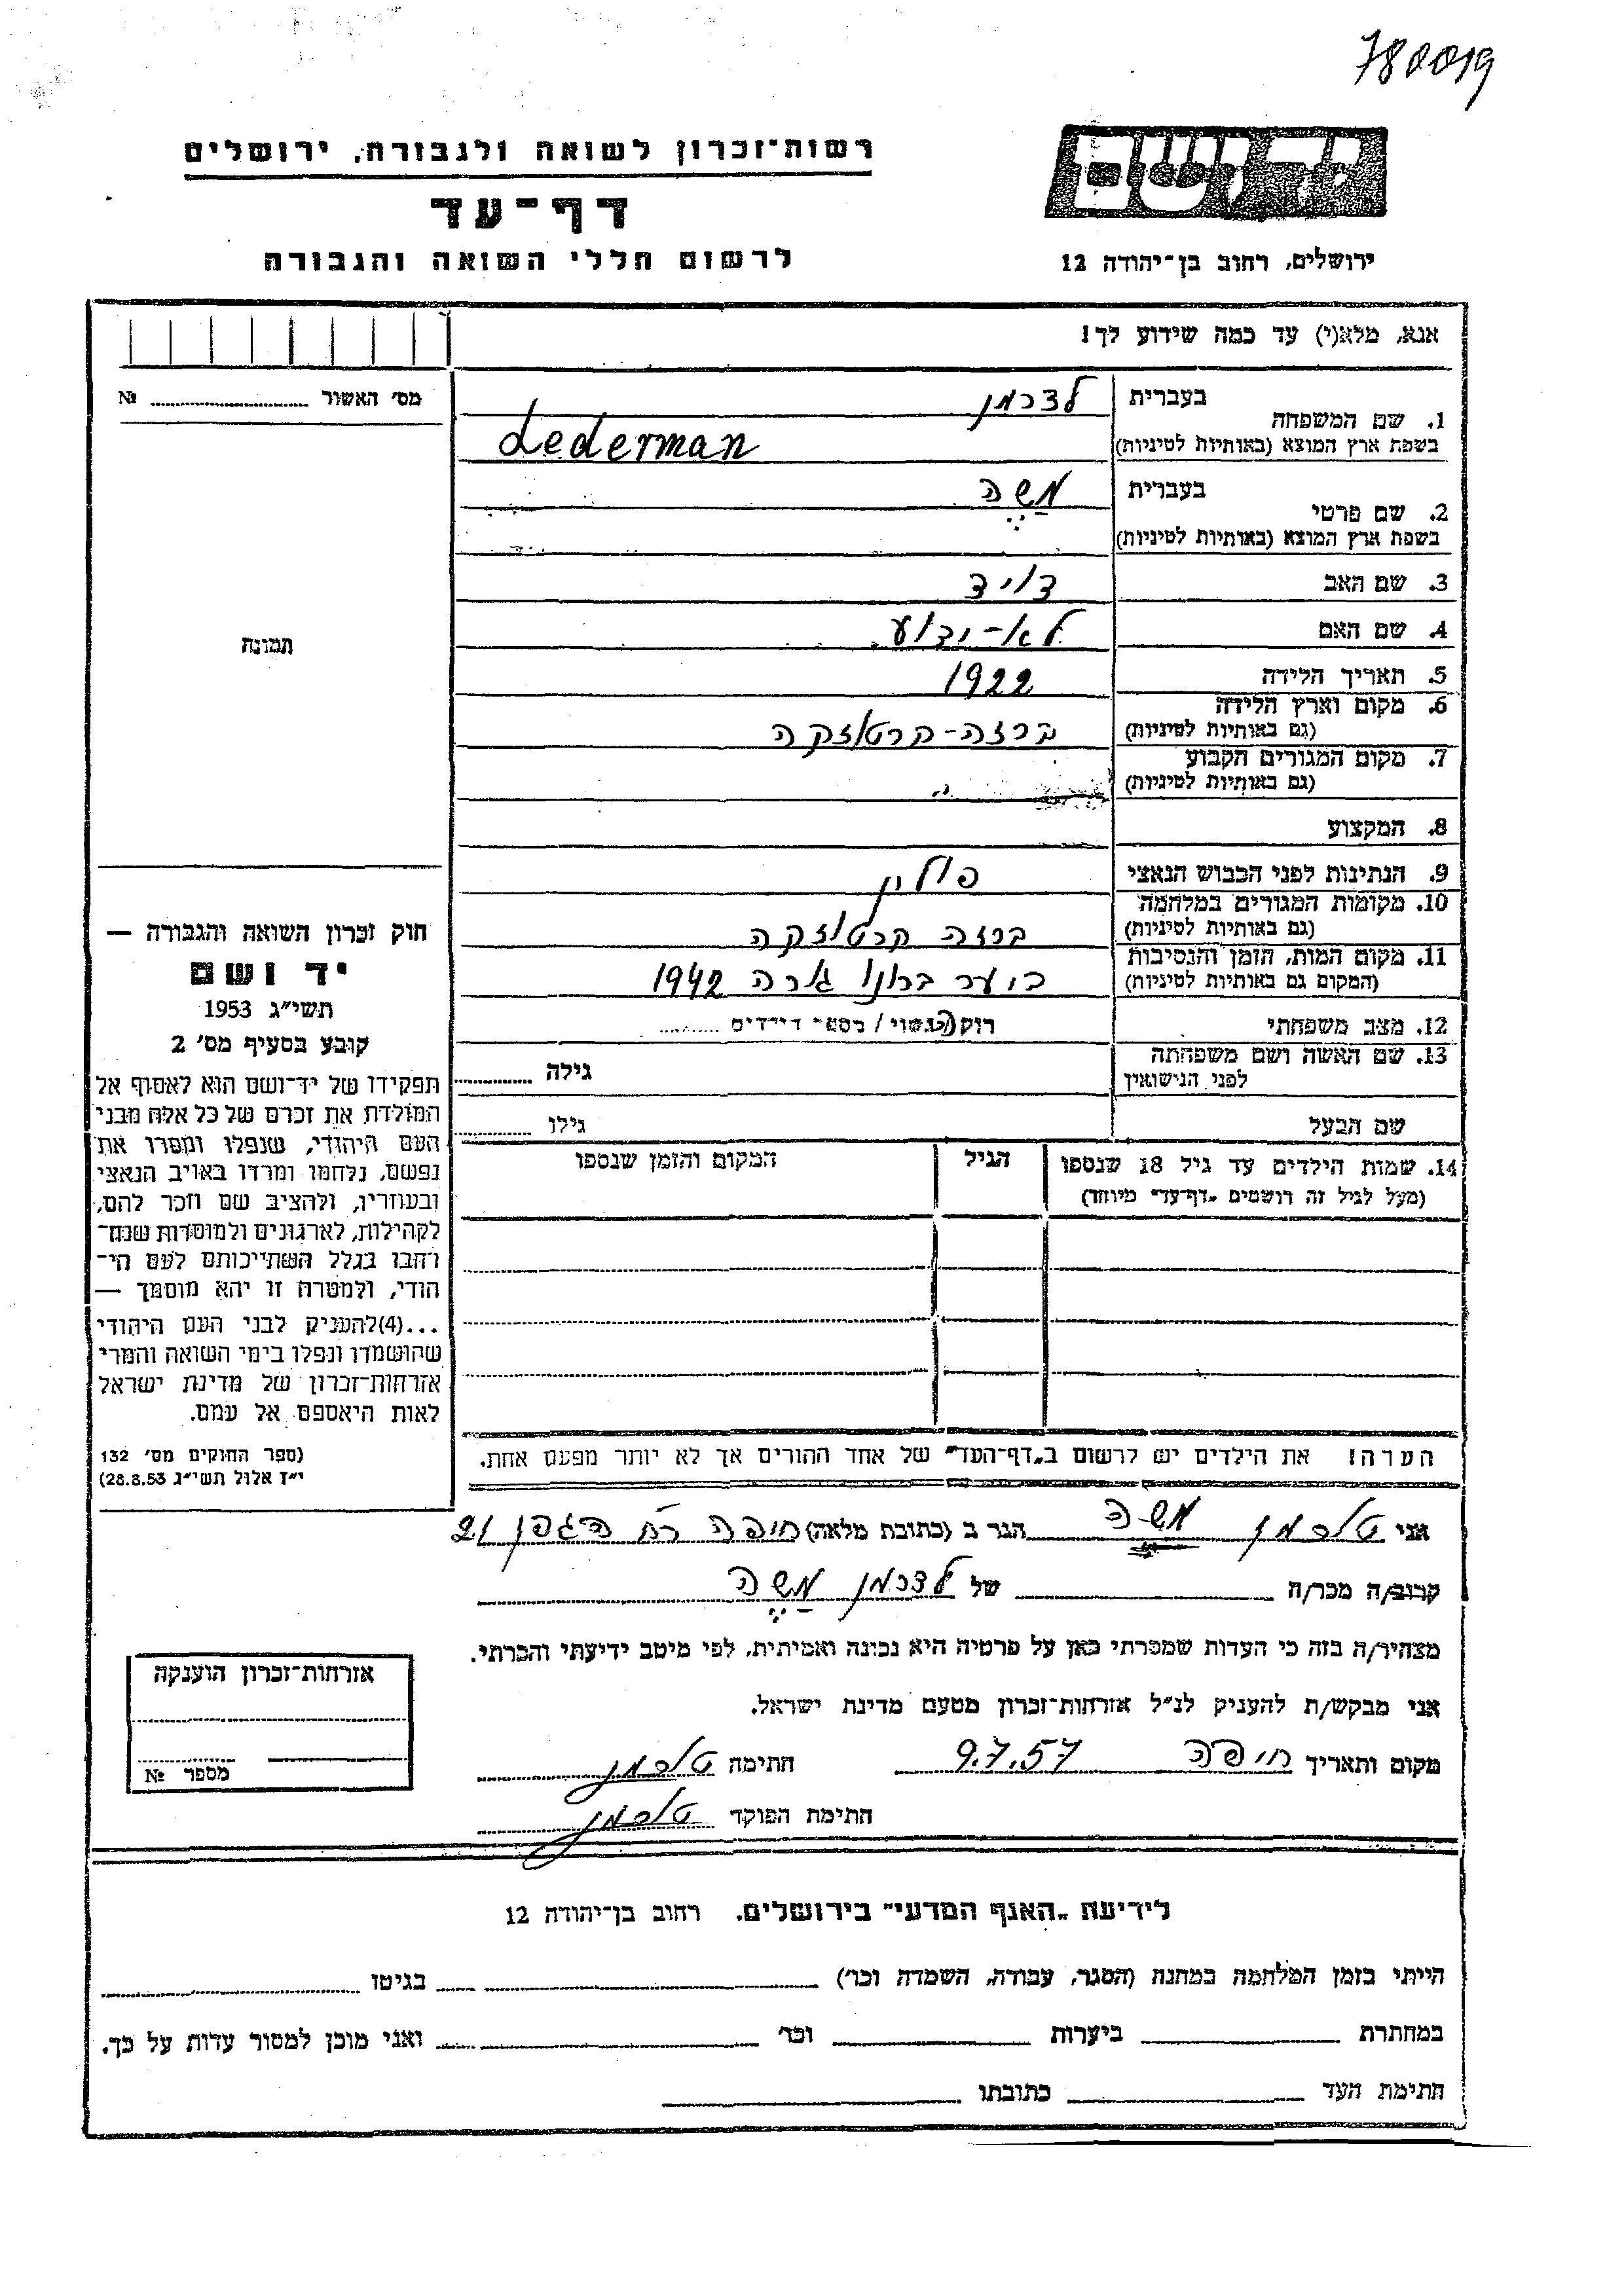 780019
יד ושם
רשות־זכרון לשואה ולגבורה, ירושלים
דף־עד
לרשום חללי השואה והגבורה
ירושלים, רחוב בן־יהודה 12
אנא, מלא(י) עד כמה שידוע לך!
מס׳ האשור № 
1. שם המשפחה בעברית לדרמן
בשפת ארץ המוצא (באותיות לטיניות) Lederman
2. שם פרטי בעברית מַשֶה
בשפת ארץ המוצא (באותיות לטיניות)
3. שם האב דויד
4. שם האם לא-ידוע
5. תאריך הלידה 1922
6. מקום וארץ הלידה ברזה-קרטוזקה
(גם באותיות לטיניות)
7. מקום המגורים הקבוע
(גם באותיות לטיניות)
8. המקצוע
9. הנתינות לפני הכבוש הנאצי פולין
10. מקומות המגורים במלחמה ברזה קרטוזקה
(גם באותיות לטיניות)
11. מקום המות, הזמן והנסיבות 1942
(המקום גם באותיות לטיניות)
12. מצב משפחתי רוק/נשוי/ מספר ילדים
13. שם האשה ושם משפחתה גילה
לפני הנישואין
שם הבעל גילו
14. שמות הילדים עד גיל 18 שנספו הגיל המקום והזמן שנספו
(מעל לגיל זה רושמים „דף־עד״ מיוחד)
הערה! את הילדים יש לרשום ב„דף־העד״ של אחד ההורים אך לא יותר מפעם אחת.
תמונה
חוק זכרון השואה והגבורה —
יד ושם
תשי״ג 1953
קובע בסעיף מס׳ 2
תפקידו של יד־ושם הוא לאסוף אל
המולדת את זכרם של כל אלה מבני
העם היהודי, שנפלו ומסרו את
נפשם, נלחמו ומרדו באויב הנאצי
ובעוזריו, ולהציב שם וזכר להם,
לקהילות, לארגונים ולמוסדות שנח־
רבו בגלל השתייכותם לעם הי־
הודי, ולמטרה זו יהא מוסמך —
...(4)להעניק לבני העם היהודי
שהושמדו ונפלו בימי השואה והמרי
אזרחות־זכרון של מדינת ישראל
לאות היאספם אל עמם.
(ספר החוקים מס׳ 132
י״ז אלול תשי״ג 28.8.53)
אני טוכמן משה הגר ב (כתובת מלאה) חיפה רח הגפן 21
קרוב/ה מכר/ה של לדרמן מַשֶה
מצהיר/ה בזה כי העדות שמסרתי כאן על פרטיה היא נכונה ואמיתית, לפי מיטב ידיעתי והכרתי.
אני מבקש/ת להעניק לנ״ל אזרחות־זכרון מטעם מדינת ישראל.
מקום ותאריך חיפה 9.7.57 חתימה טוכמן
חתימת הפוקד טוכמן
אזרחות־זכרון הוענקה
מספר №
לידיעת „האגף המדעי״ בירושלים, רחוב בן־יהודה 12
הייתי בזמן המלחמה במחנה (הסגר, עבודה, השמדה וכו׳) בגיטו
במחתרת ביערות וכו׳ ואני מוכן למסור עדות על כך.
חתימת העד כתובתו